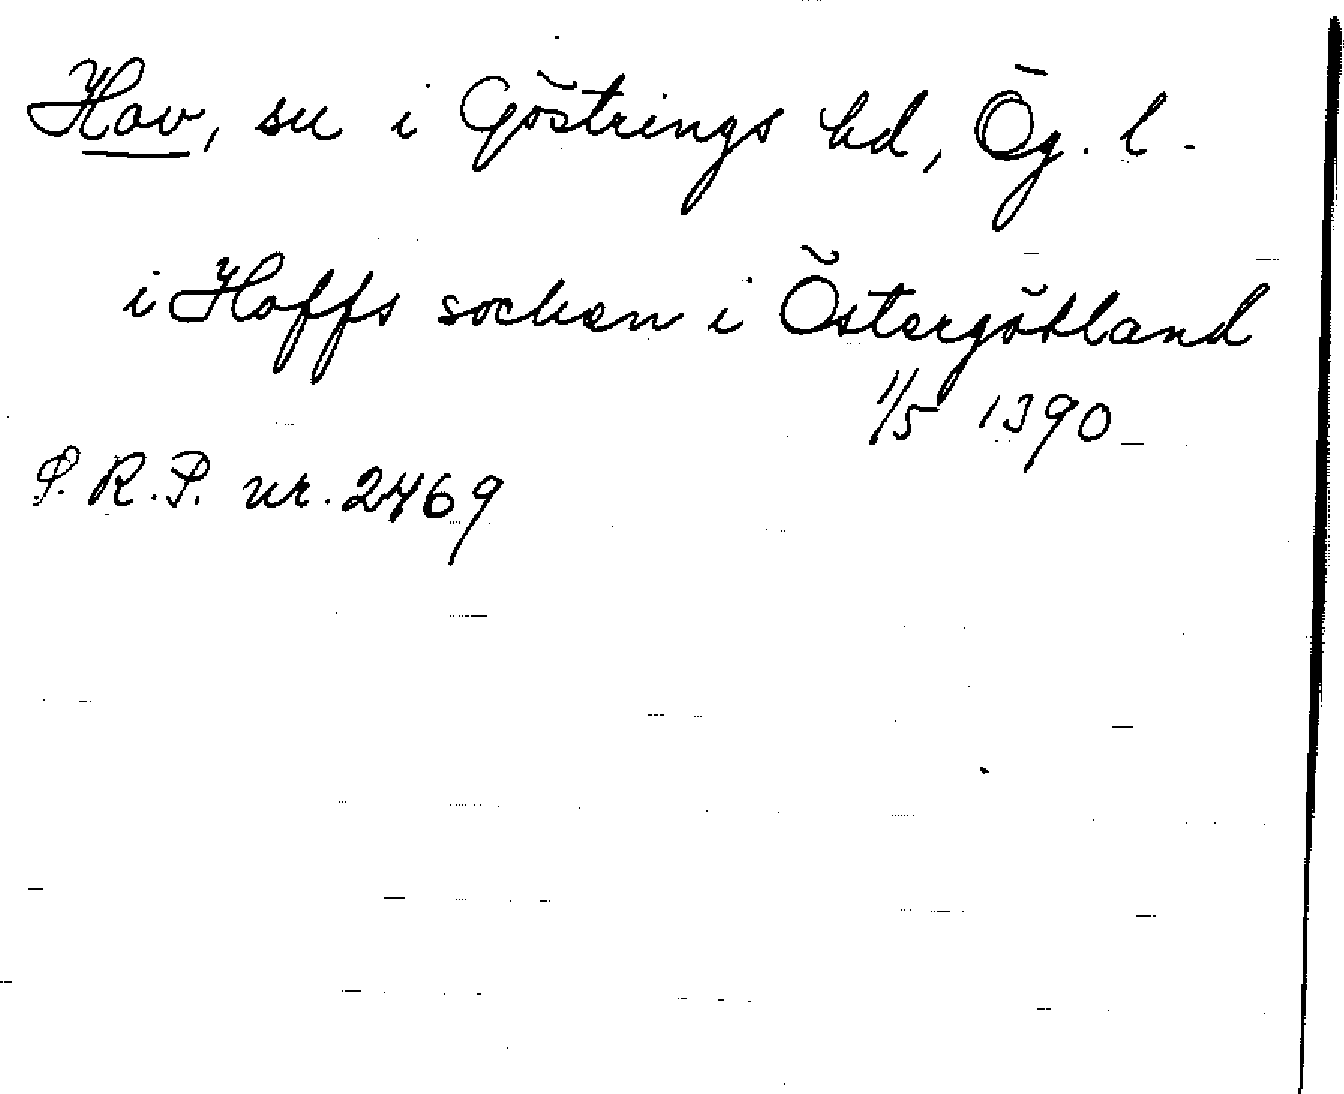 Hov, sn i Göstrings hd, Ög. l.
i Hoffs socken i Östergötland
1/5 1390
S.R.P. nr. 2469